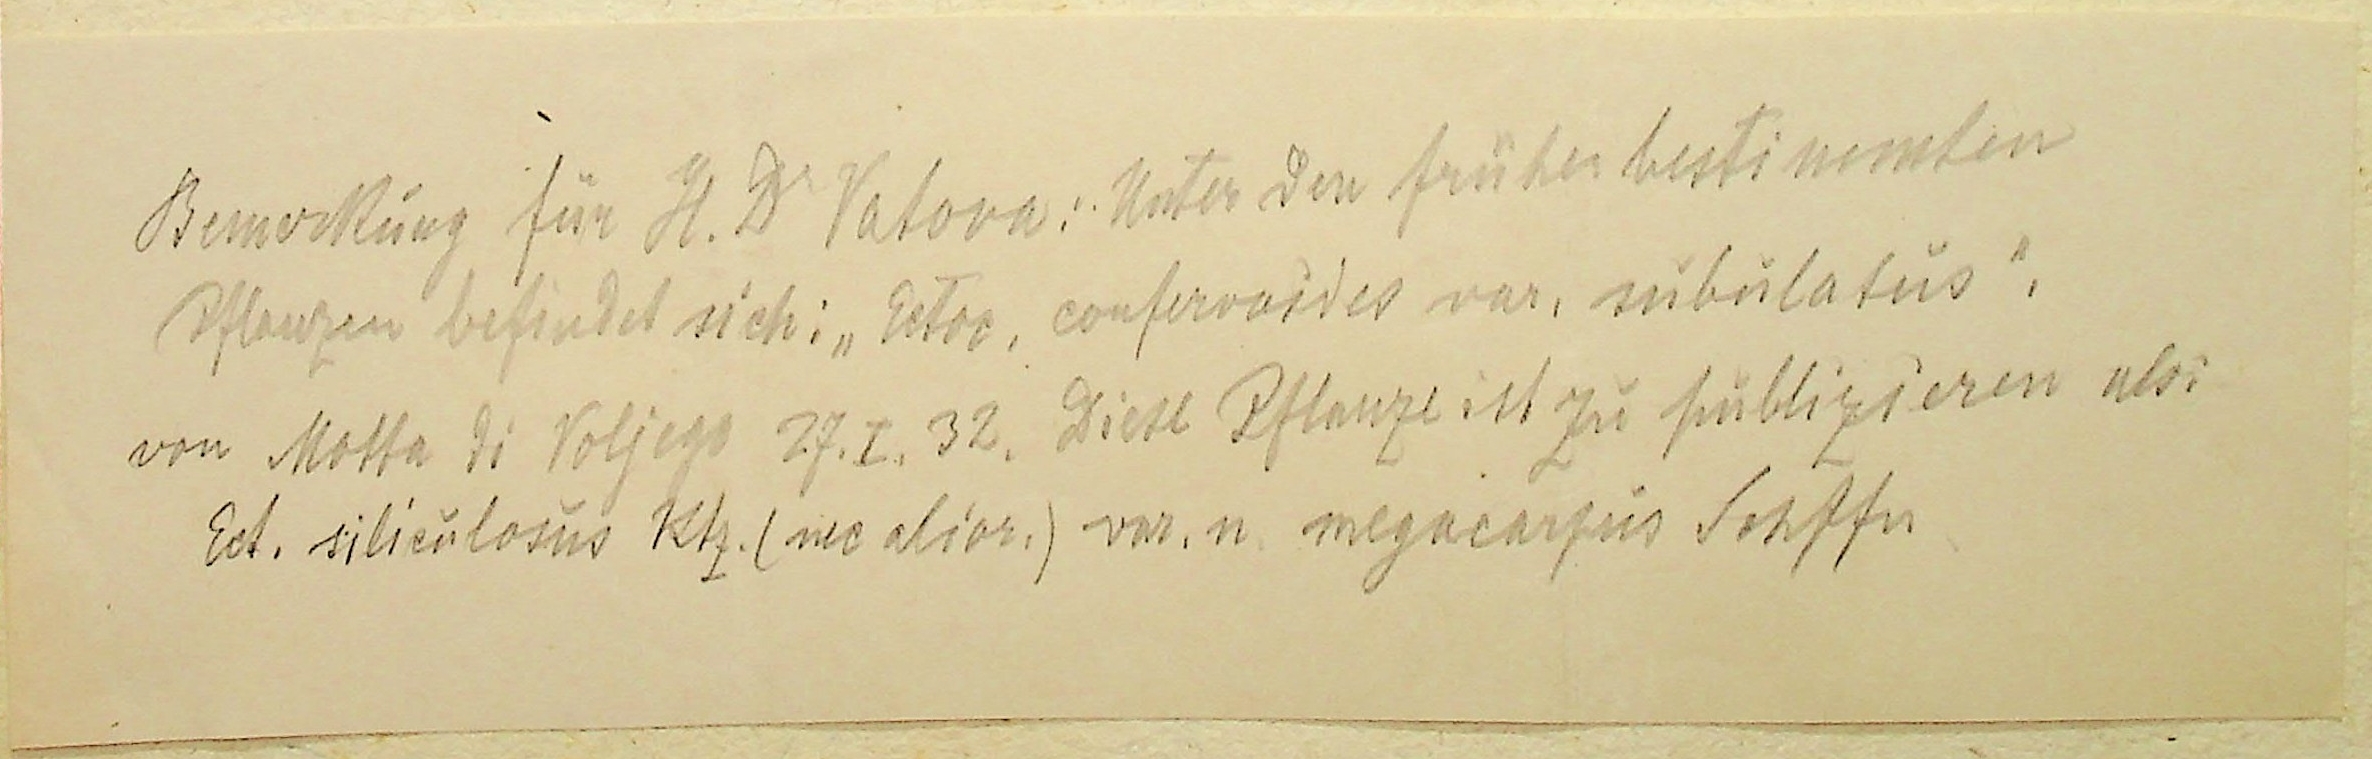 Bemerkung für H. Dr Vatova: Unter den früher bestimmten
Pflanzen befindet sich: „Ectoc. confervoides var. subulatus",
von Motta di Voljego 27.I.32. Diese Pflanze ist zu publizieren als:
Ect. siliculosus Ktz. (nec alior.) var. n. megacarpus Schffn